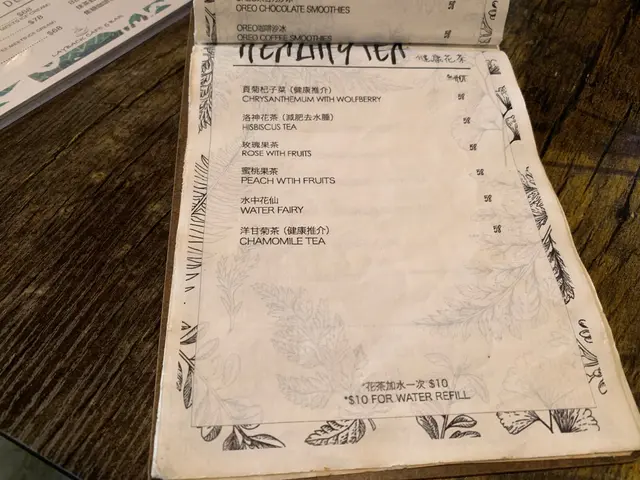 OREO CHOCOLATE SMOOTHIES
OREO咖啡沙冰
OREO COFFEE SMOOTHIES
HEALTHY TEA 健康花茶
貢菊杞子茶 (健康推介)
CHRYSANTHEMUM WITH WOLFBERRY 58
洛神花茶 (減肥去水腫)
HISBISCUS TEA 58
玫瑰果茶
ROSE WITH FRUITS 58
蜜桃果茶
PEACH WTIH FRUITS 58
水中花仙
WATER FAIRY 58
洋甘菊茶 (健康推介)
CHAMOMILE TEA 58
*花茶加水一次 $10
*$10 FOR WATER REFILL